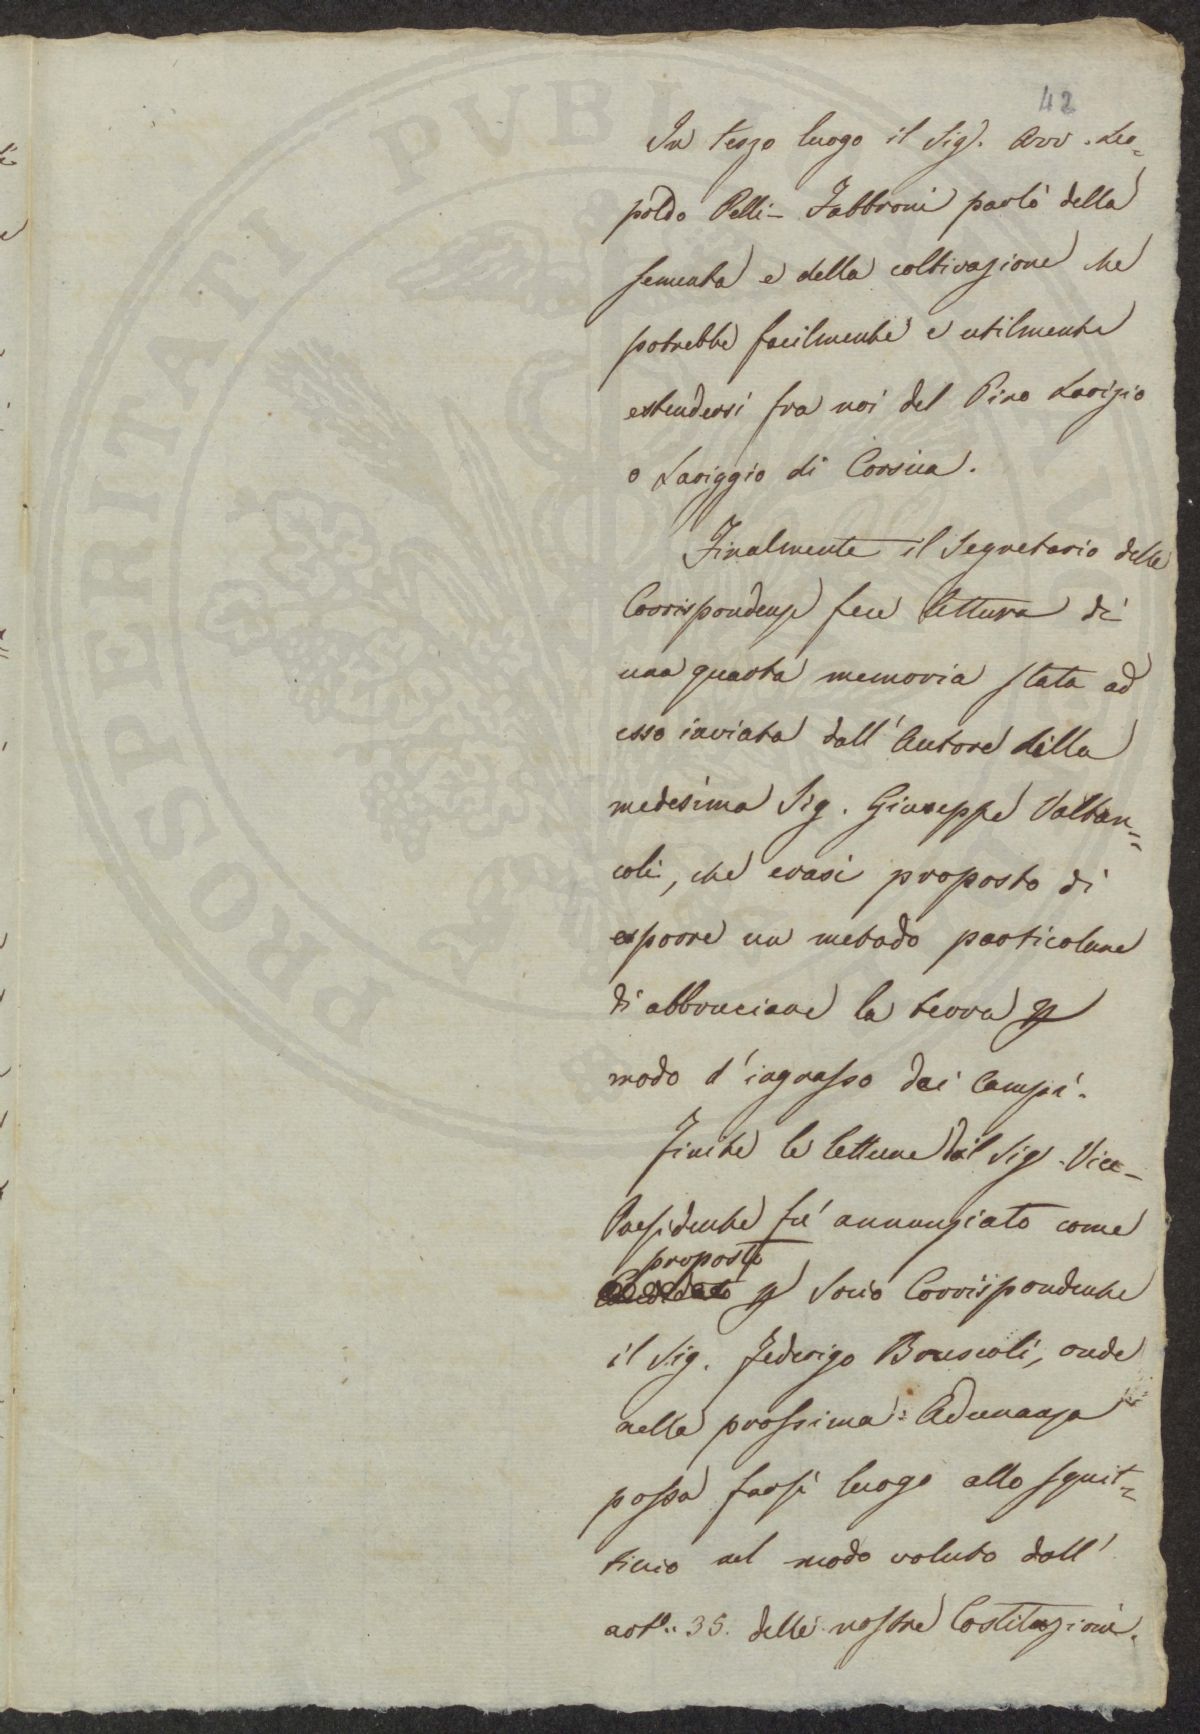 42
In terzo luogo il Sig. Avv. Leo-
poldo Pelli-Fabbroni parlò della
sementa e della coltivazione che
potrebbe facilmente e utilmente
estendersi fra noi del Pino Larizio
o Lariggio di Corsica.
Finalmente il Segretario delle
Corrispondenze fece lettura di
una quarta memoria stata ad
esso inviata dall'Autore della
medesima Sig. Giuseppe Valtan=
coli, che erasi proposto di
esporre un metodo particolare
di abbruciare la terra p
modo d'ingrasso dei Campi.
Finite le letture dal Sig. Vice-
Presidente fu annunziato come
proposto
p Socio Corrispondente
il Sig. Federigo Bruscoli, onde
nella prossima Adunanza
possa farsi luogo allo squit=
tinio nel modo voluto dall'
arto. 35. delle nostre Costituzioni.
PROSPERITATI PVBLICAE